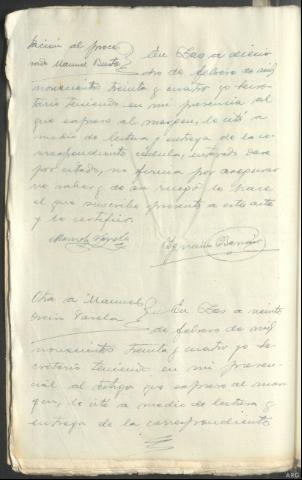 tación al proce
sado Manuel
En Oas a dieci
ocho de febrero de mil
novecientos treinta y cuatro yo secre
tario teniendo en mi presencia al
que expreso al margen, lo cité a
medio de lectura y entrega de la co
rrespondiente cédula, enterado dase
por citado, no firma por asegurar
no saber y de su ruego lo hace
el que suscribe presente a este acto
y lo certifico.
Manuel Varela
Otra a Manuel
Varela
En Oas a veinte
de febrero de mil
novecientos treinta y cuatro yo Se
cretario teniendo en mi presen
cia al testigo que expreso al mar
gen, lo cité a medio de lectura y
entrega de la correspondiente
ARG